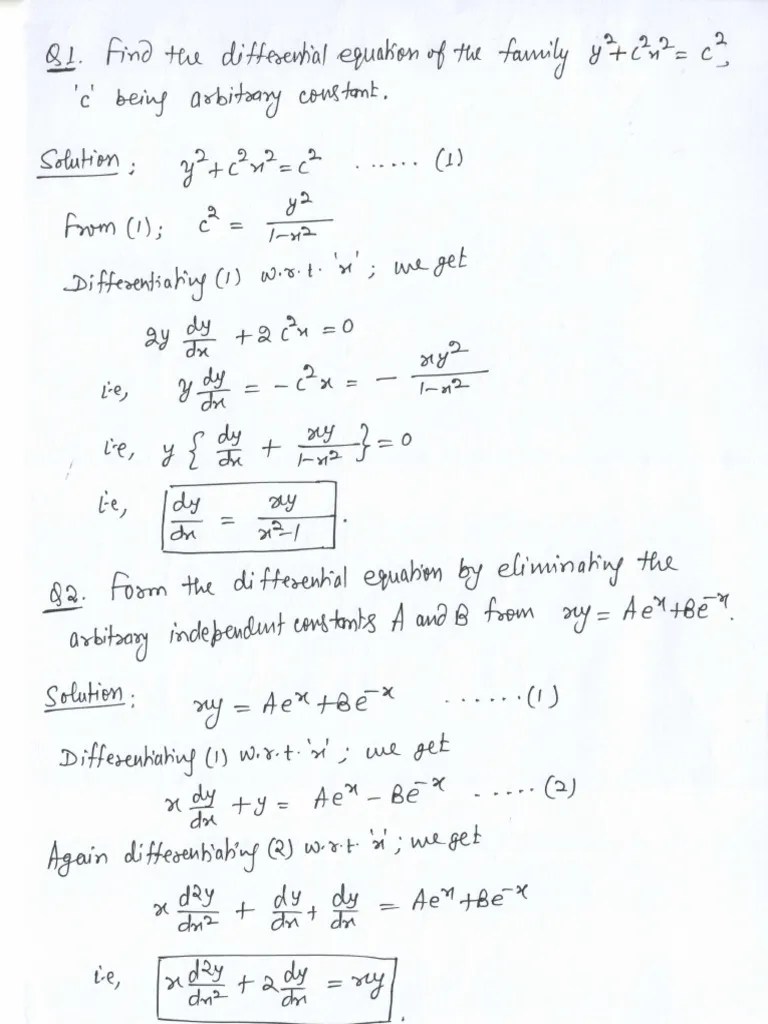 Q1. Find the differential equation of the family y²+c²x² = c²,
'c' being arbitrary constant.
Solution: y²+c²x²=c² ...... (1)
From (1); c² = y²/(1-x²)
Differentiating (1) w.r.t. 'x'; we get
2y dy/dx + 2c²x = 0
i.e, y dy/dx = -c²x = - xy²/(1-x²)
i.e, y { dy/dx + xy/(1-x²) } = 0
i.e, dy/dx = xy/(x²-1).
Q2. Form the differential equation by eliminating the
arbitrary independent constants A and B from xy = Ae^x+Be^-x.
Solution: xy = Ae^x+Be^-x ......(1)
Differentiating (1) w.r.t. 'x'; we get
x dy/dx + y = Ae^x - Be^-x ..... (2)
Again differentiating (2) w.r.t. 'x'; we get
x d²y/dx² + dy/dx + dy/dx = Ae^x+Be^-x
i.e, x d²y/dx² + 2 dy/dx = xy.